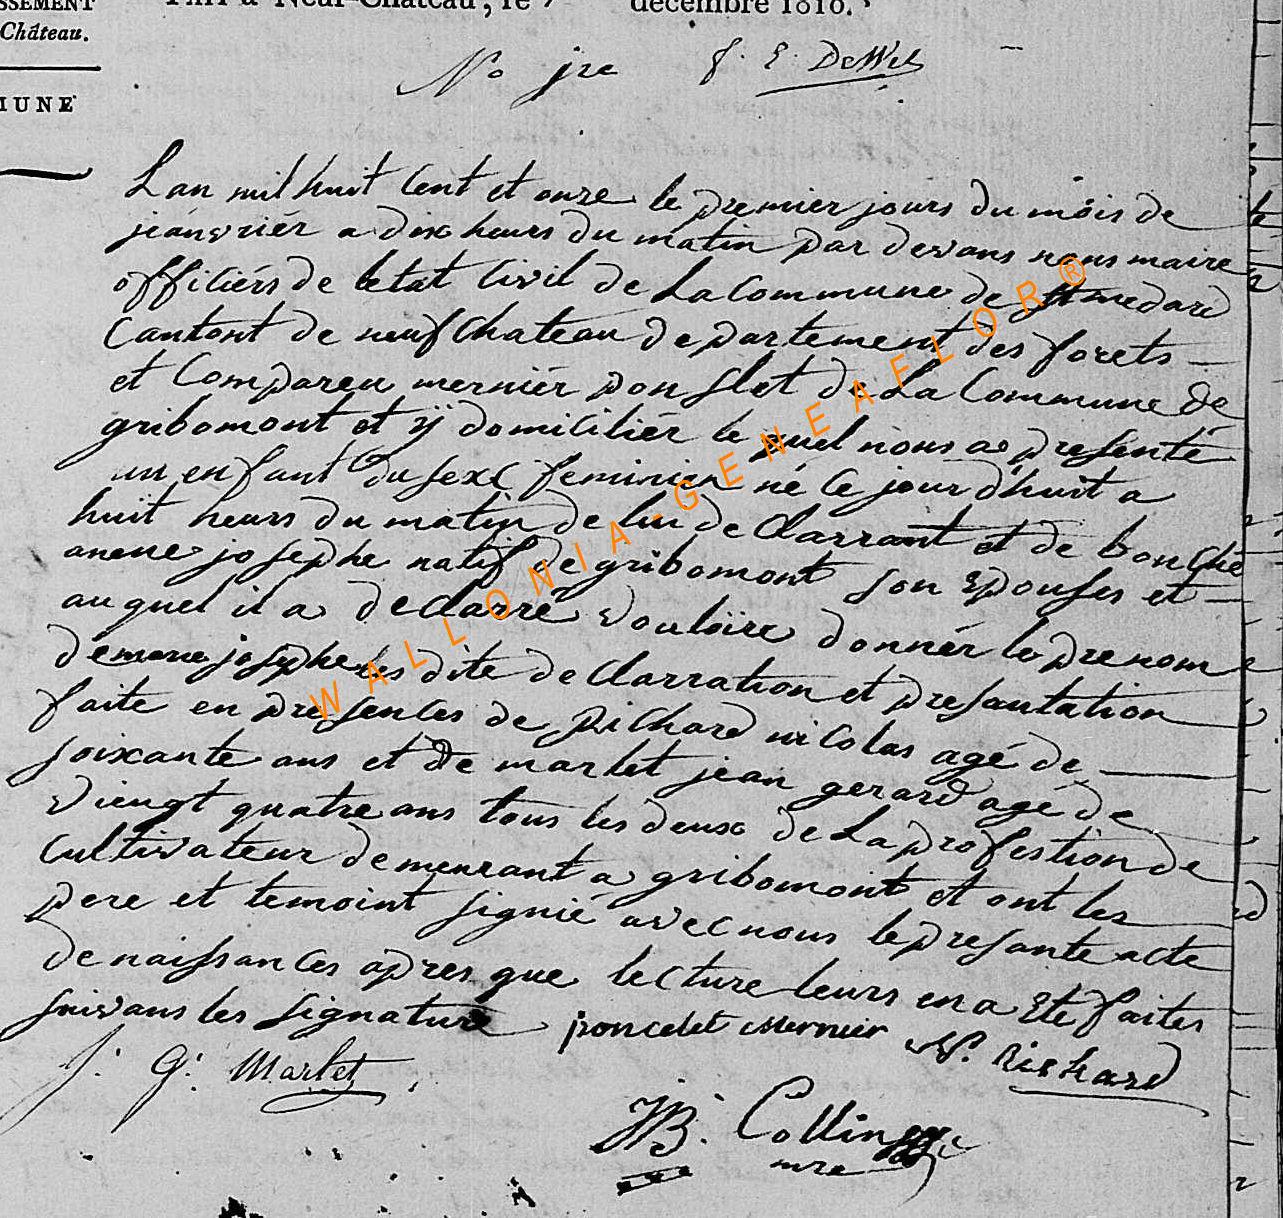 SSEMENT
Château.
Fait à Neuf-Château, le décembre 1810.
MUNE
No 1re f. E. DeWel
Lan mil huit Cent et onze le premier jours du mois de
jeanvriér a dix heurs du matin par devans nous maire
officiérs de letat Civil de La Commune de St medard
Cantont de neufchateau departement des forets
et Compareu merniér ponslet de La Commune de
gribomont et ÿ domiciliér le quel nous a presenté
un enfant du sexe feminien né Ce jour d'huit a
huit heurs du matin de lui declarrant et de bonChé
anene josephe natif de gribomont son Epouses et
au quel il a declarré vouloire donnér le prenom
de marie josephe les dite declarration et presantation
faite en presences de Richard nicolas agé de
soixante ans et de marlet jean gerard agé de
viengt quatre ans tous les deux de La profestion de
Cultivateur demeurant a gribomont et ont les
pere et temoint signié avec nous le presante acte
de naissances apres que lecture leurs en a Eté faites
suivans les signature poncelet Mernier N. Richard
J. G. Marlet
JB. Collin
mre
WALLONIA-GENEAFLOR®